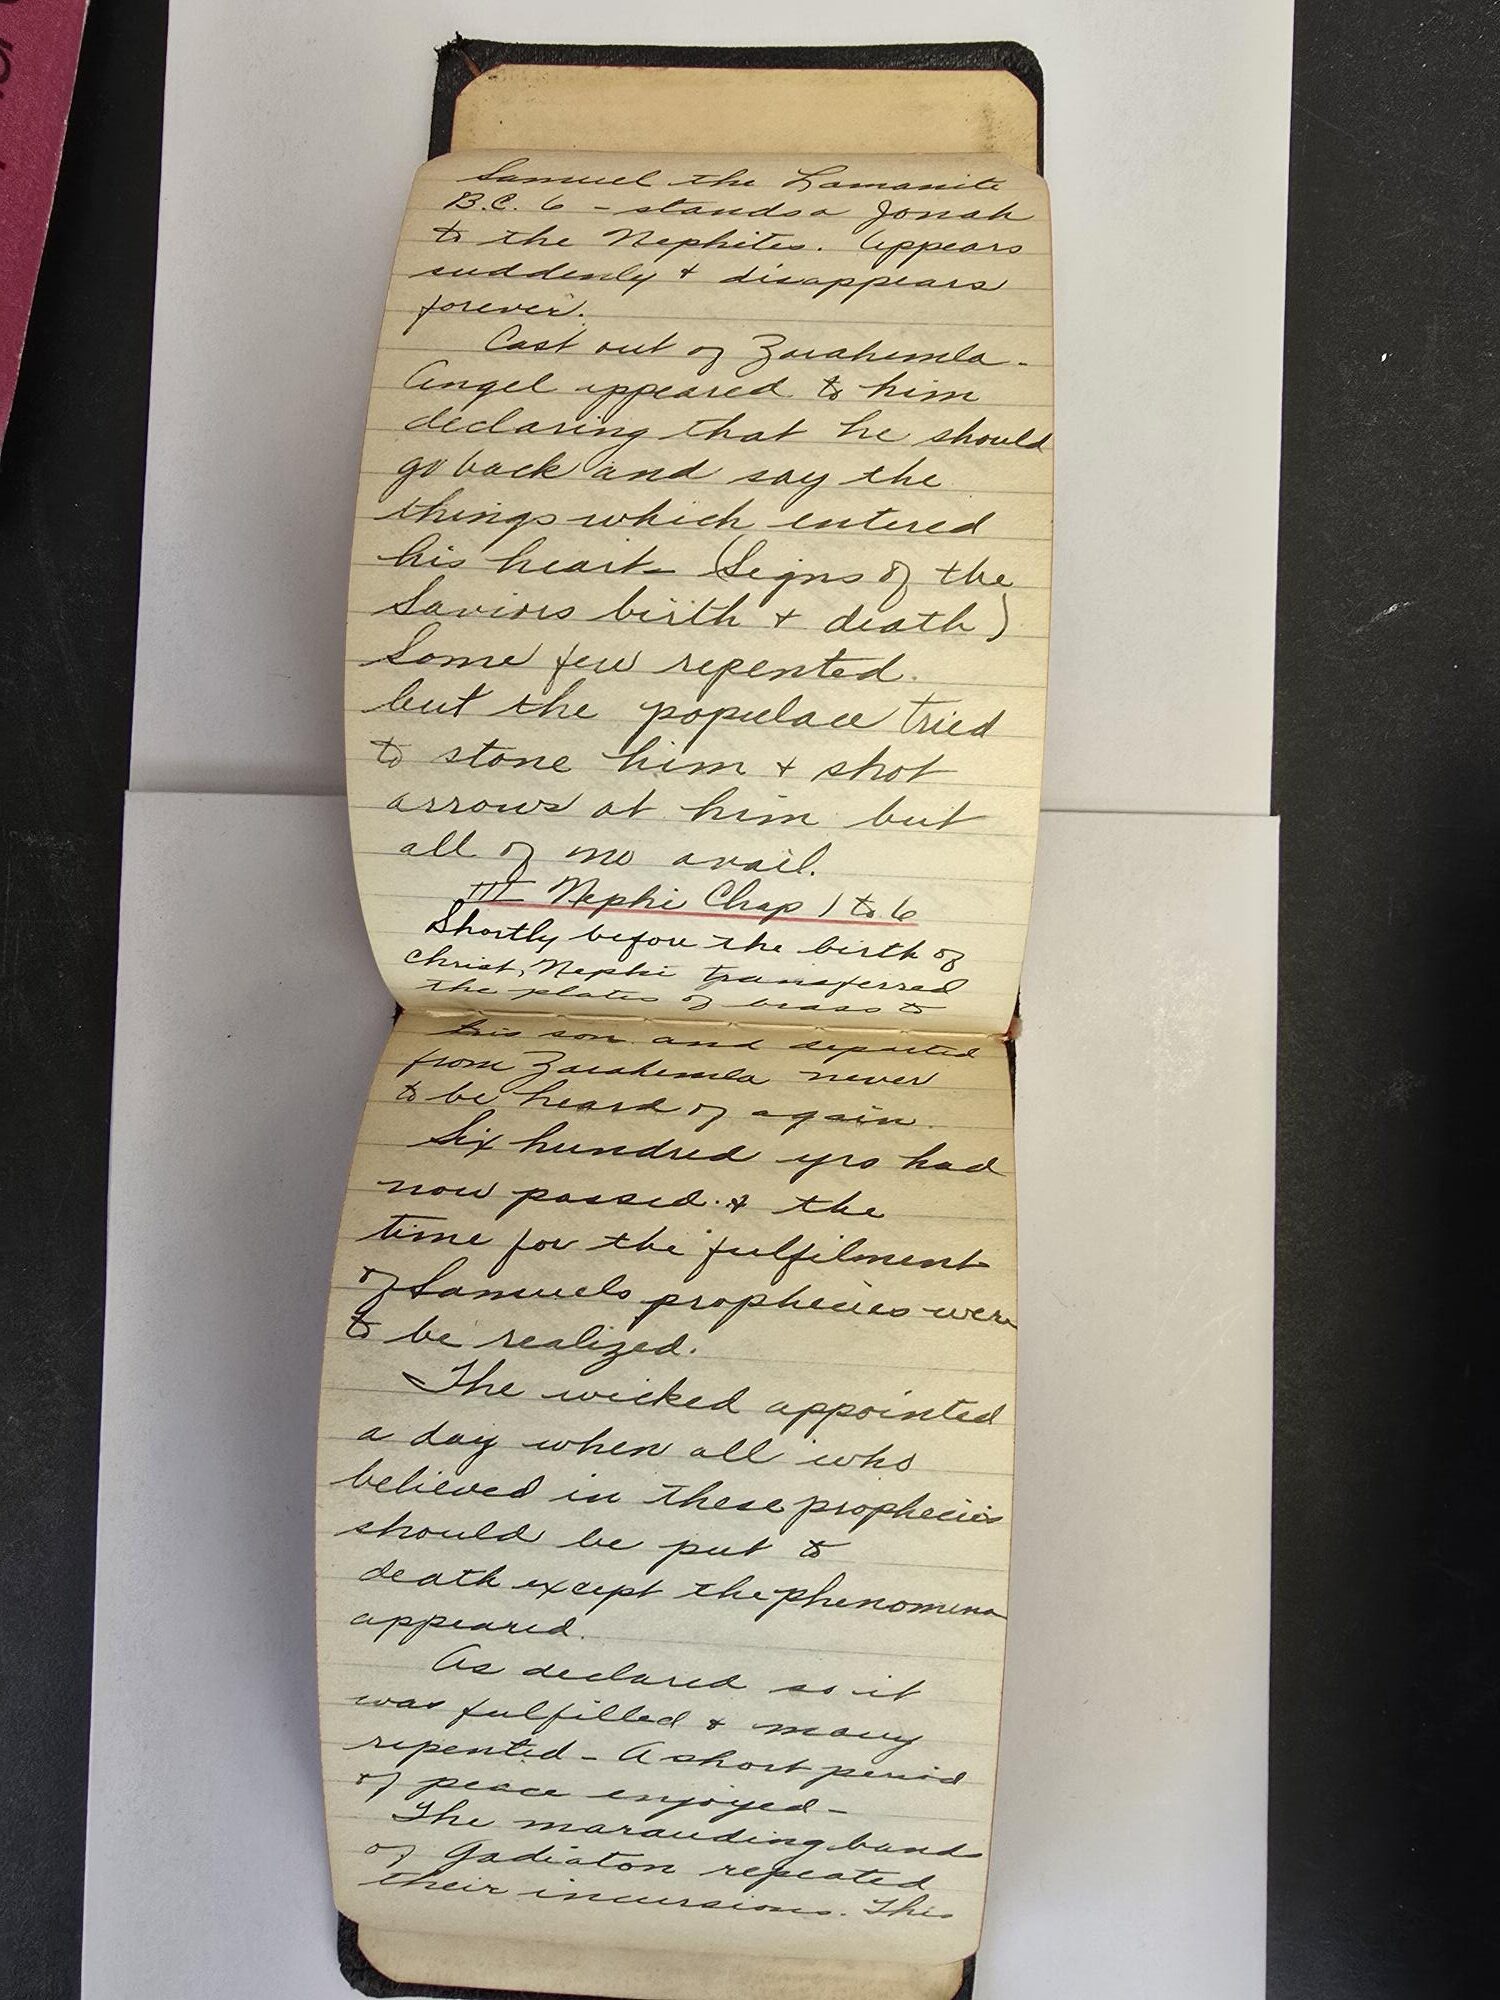 Samuel the Lamanite
B.C. 6 - stands a Jonah
to the Nephites. Appears
suddenly & disappears
forever.
Cast out of Zarahemla -
Angel appeared to him
declaring that he should
go back and say the
things which entered
his heart - (Signs of the
Saviors birth & death)
Some few repented.
but the populace tried
to stone him & shot
arrows at him but
all of no avail.
III Nephi Chap 1 to 6
Shortly before the birth of
Christ, Nephi transferred
the plates of brass to
his son and departed
from Zarahemla never
to be heard of again.
Six hundred yrs had
now passed & the
time for the fulfilment
of Samuels prophecies were
to be realized.
The wicked appointed
a day when all who
believed in these prophecies
should be put to
death except the phenomena
appeared.
As declared so it
was fulfilled & many
repented - A short period
of peace enjoyed -
The marauding bands
of Gadiaton repeated
their incursions. This